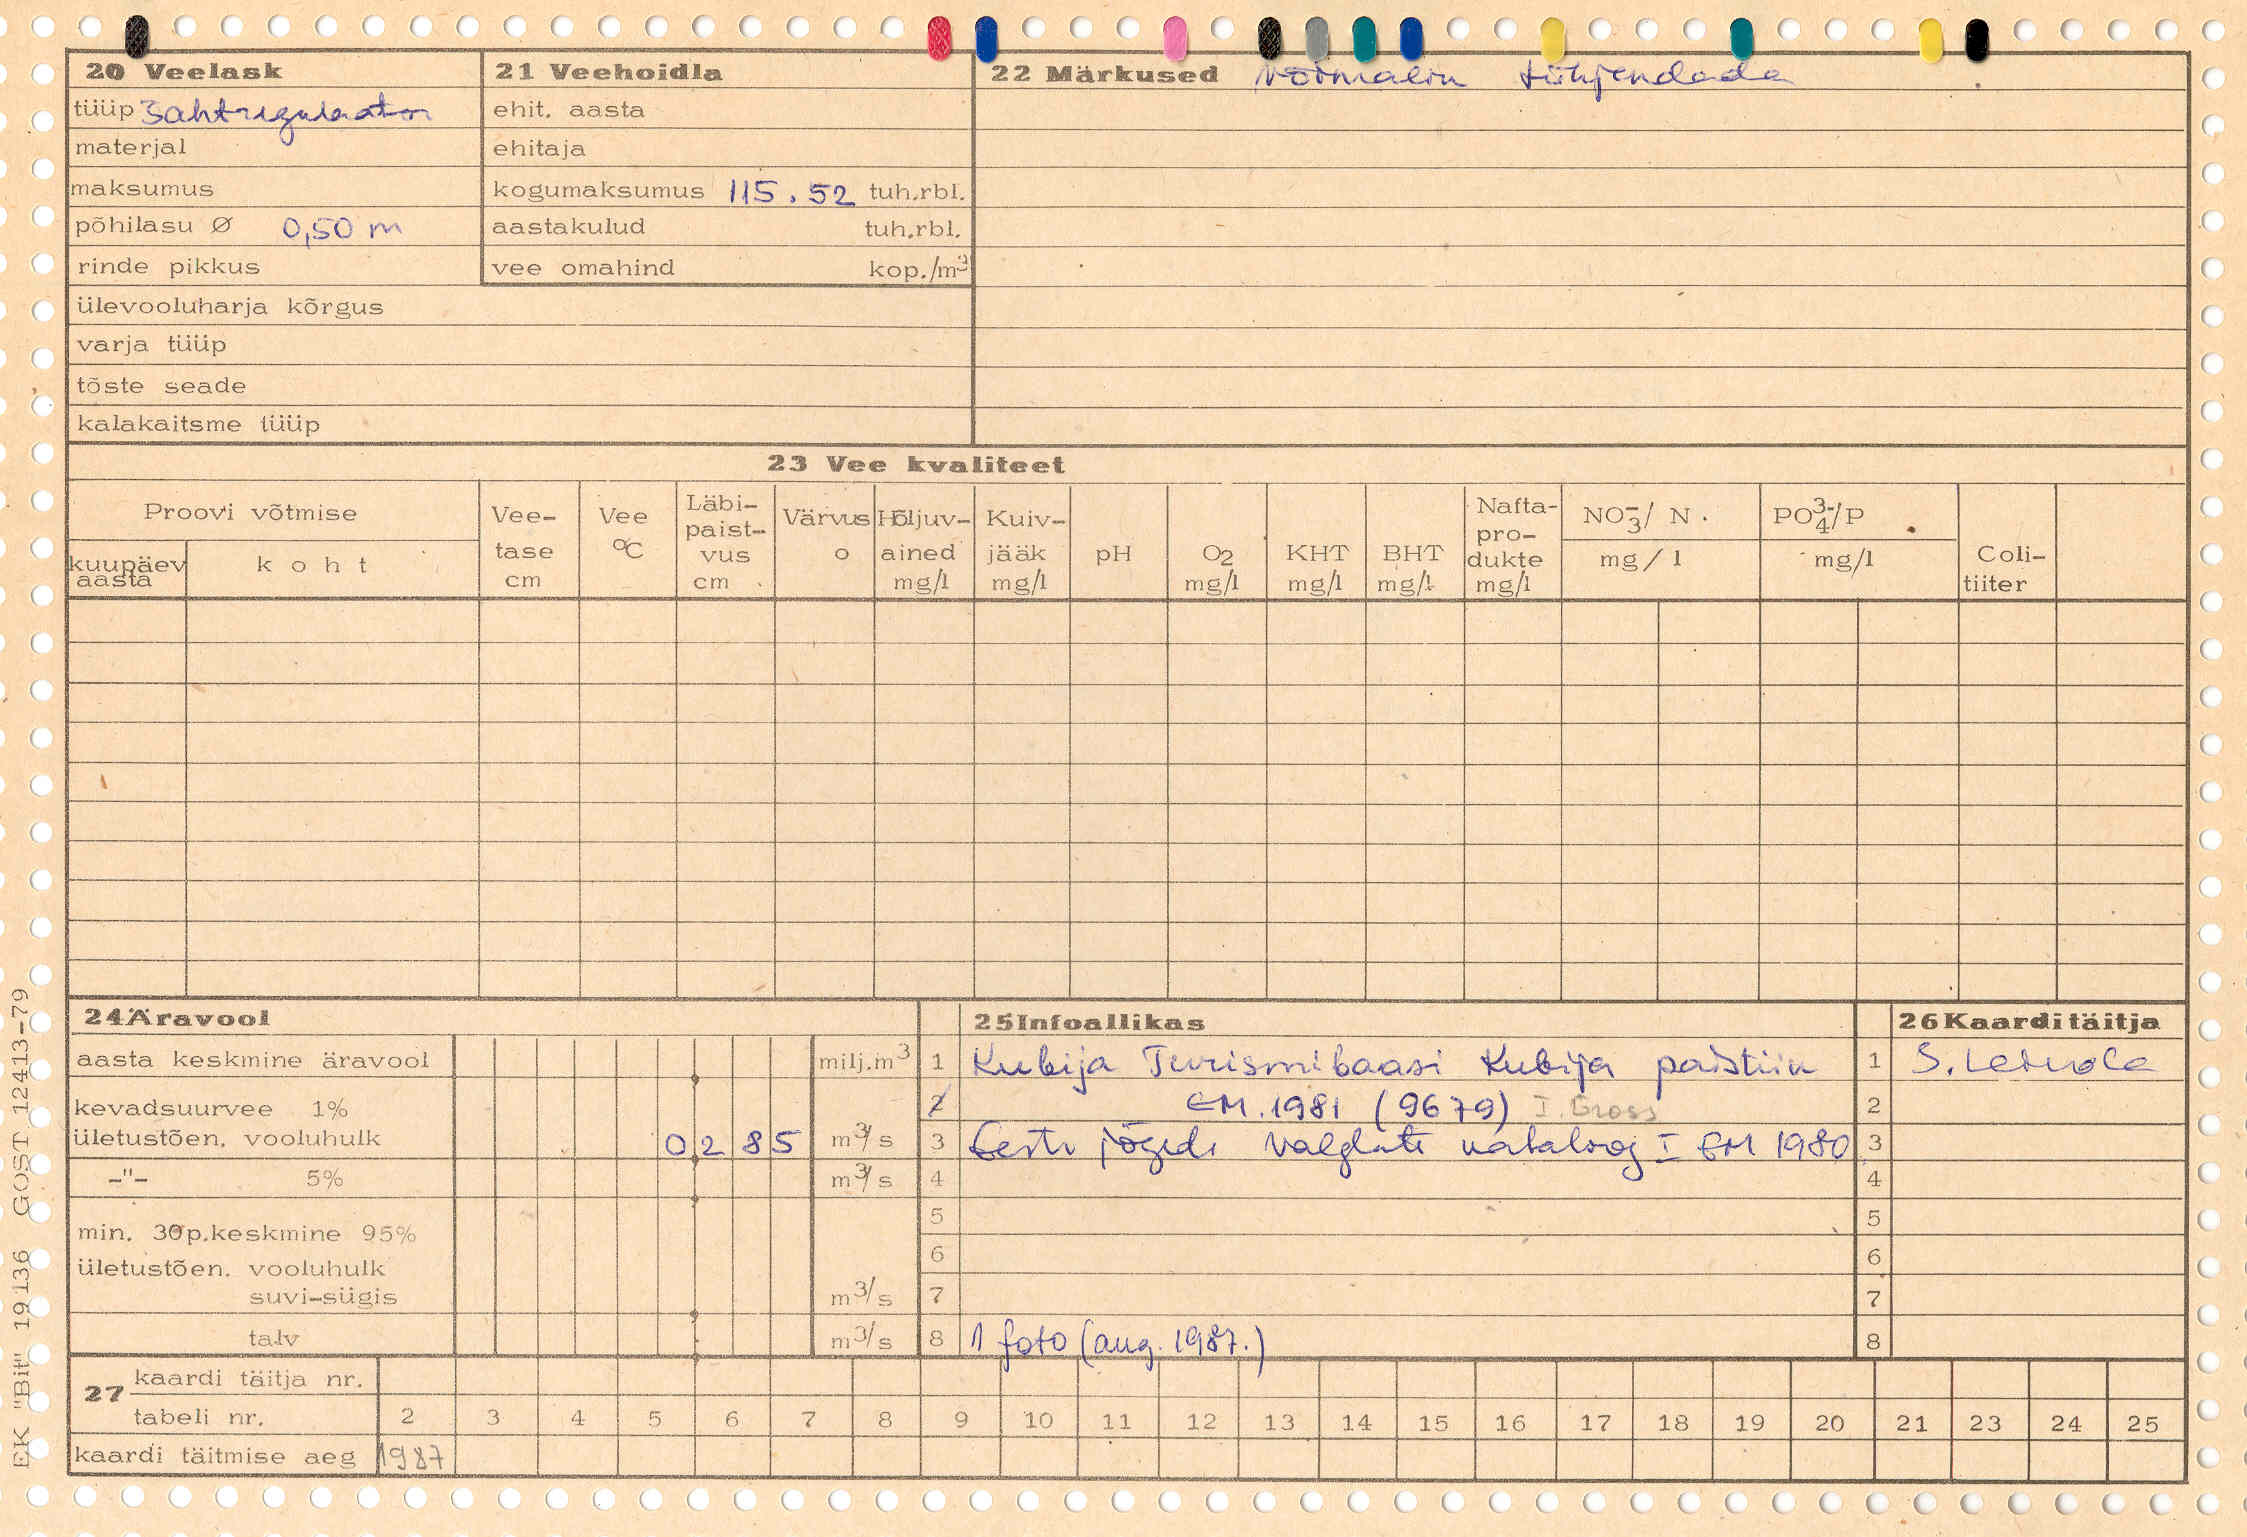 20 Veelask
tüüp Sahtregulaator
materjal
maksumus
põhilasu Ø 0,50 m
rinde pikkus
ülevooluharja kõrgus
varja tüüp
tõste seade
kalakaitsme tüüp
21 Veehoidla
ehit. aasta
ehitaja
kogumaksumus 115.52 tuh.rbl.
aastakulud tuh.rbl.
vee omahind kop./m³
22 Märkused Võimalik tühjendada
23 Vee kvaliteet
Proovi võtmise
kuupäev aasta
koht
Vee-
tase
cm
Vee
°C
Läbi-
paist-
vus
cm
Värvus
o
Hõljuv-
ained
mg/l
Kuiv-
jääk
mg/l
pH
O2
mg/l
KHT
mg/l
BHT
mg/l
Nafta-
pro-
dukte
mg/l
NO₃⁻/ N
mg/l
PO₄³⁻/P
mg/l
Coli-
tiiter
24 Äravool
aasta keskmine äravool milj.m³
kevadsuurvee 1%
ületustõen. vooluhulk 0 2 8 5 m³/s
-"- 5% m³/s
min. 30p.keskmine 95%
ületustõen. vooluhulk
suvi-sügis m³/s
talv m³/s
25 Infoallikas
1 Kubija Turismibaasi Kubija paistiik
2 EM.1981 (9679) I. Gross
3 Eesti jõgede valglate kataloog I EM 1980
4
5
6
7
8 1 foto (aug. 1987.)
26 Kaardi täitja
1
2
3
4
5
6
7
8
27 kaardi täitja nr.
tabeli nr. 2 3 4 5 6 7 8 9 10 11 12 13 14 15 16 17 18 19 20 21 23 24 25
kaardi täitmise aeg 1987
EK "Bit" 19136 GOST 12413-79